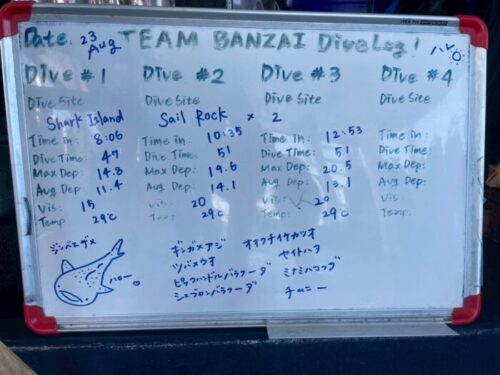 Date. 23 Aug TEAM BANZAI DiveLog! ハレ
Dive #1 Dive #2 Dive #3 Dive #4
Dive Site Dive Site Dive Site Dive Site
Shark Island Sail Rock × 2
Time in: 8:06 Time in: 10:35 Time in: 12:53 Time in:
Dive Time: 47 Dive Time: 51 Dive Time: 51 Dive Time:
Max Dep: 14.8 Max Dep: 19.6 Max Dep: 20.5 Max Dep:
Avg Dep: 11.4 Avg Dep: 14.1 Avg Dep: 13.1 Avg Dep:
Vis: 15 Vis: 20 Vis: 20 Vis:
Temp: 29℃ Temp: 29℃ Temp: 29℃ Temp:
ジンベエザメ ギンガメアジ オオクチイケカツオ
ツバメウオ ヤイトハタ
ハロー ピックハンドルバラクーダ ミナミハコフグ
シェブロンバラクーダ チムニー